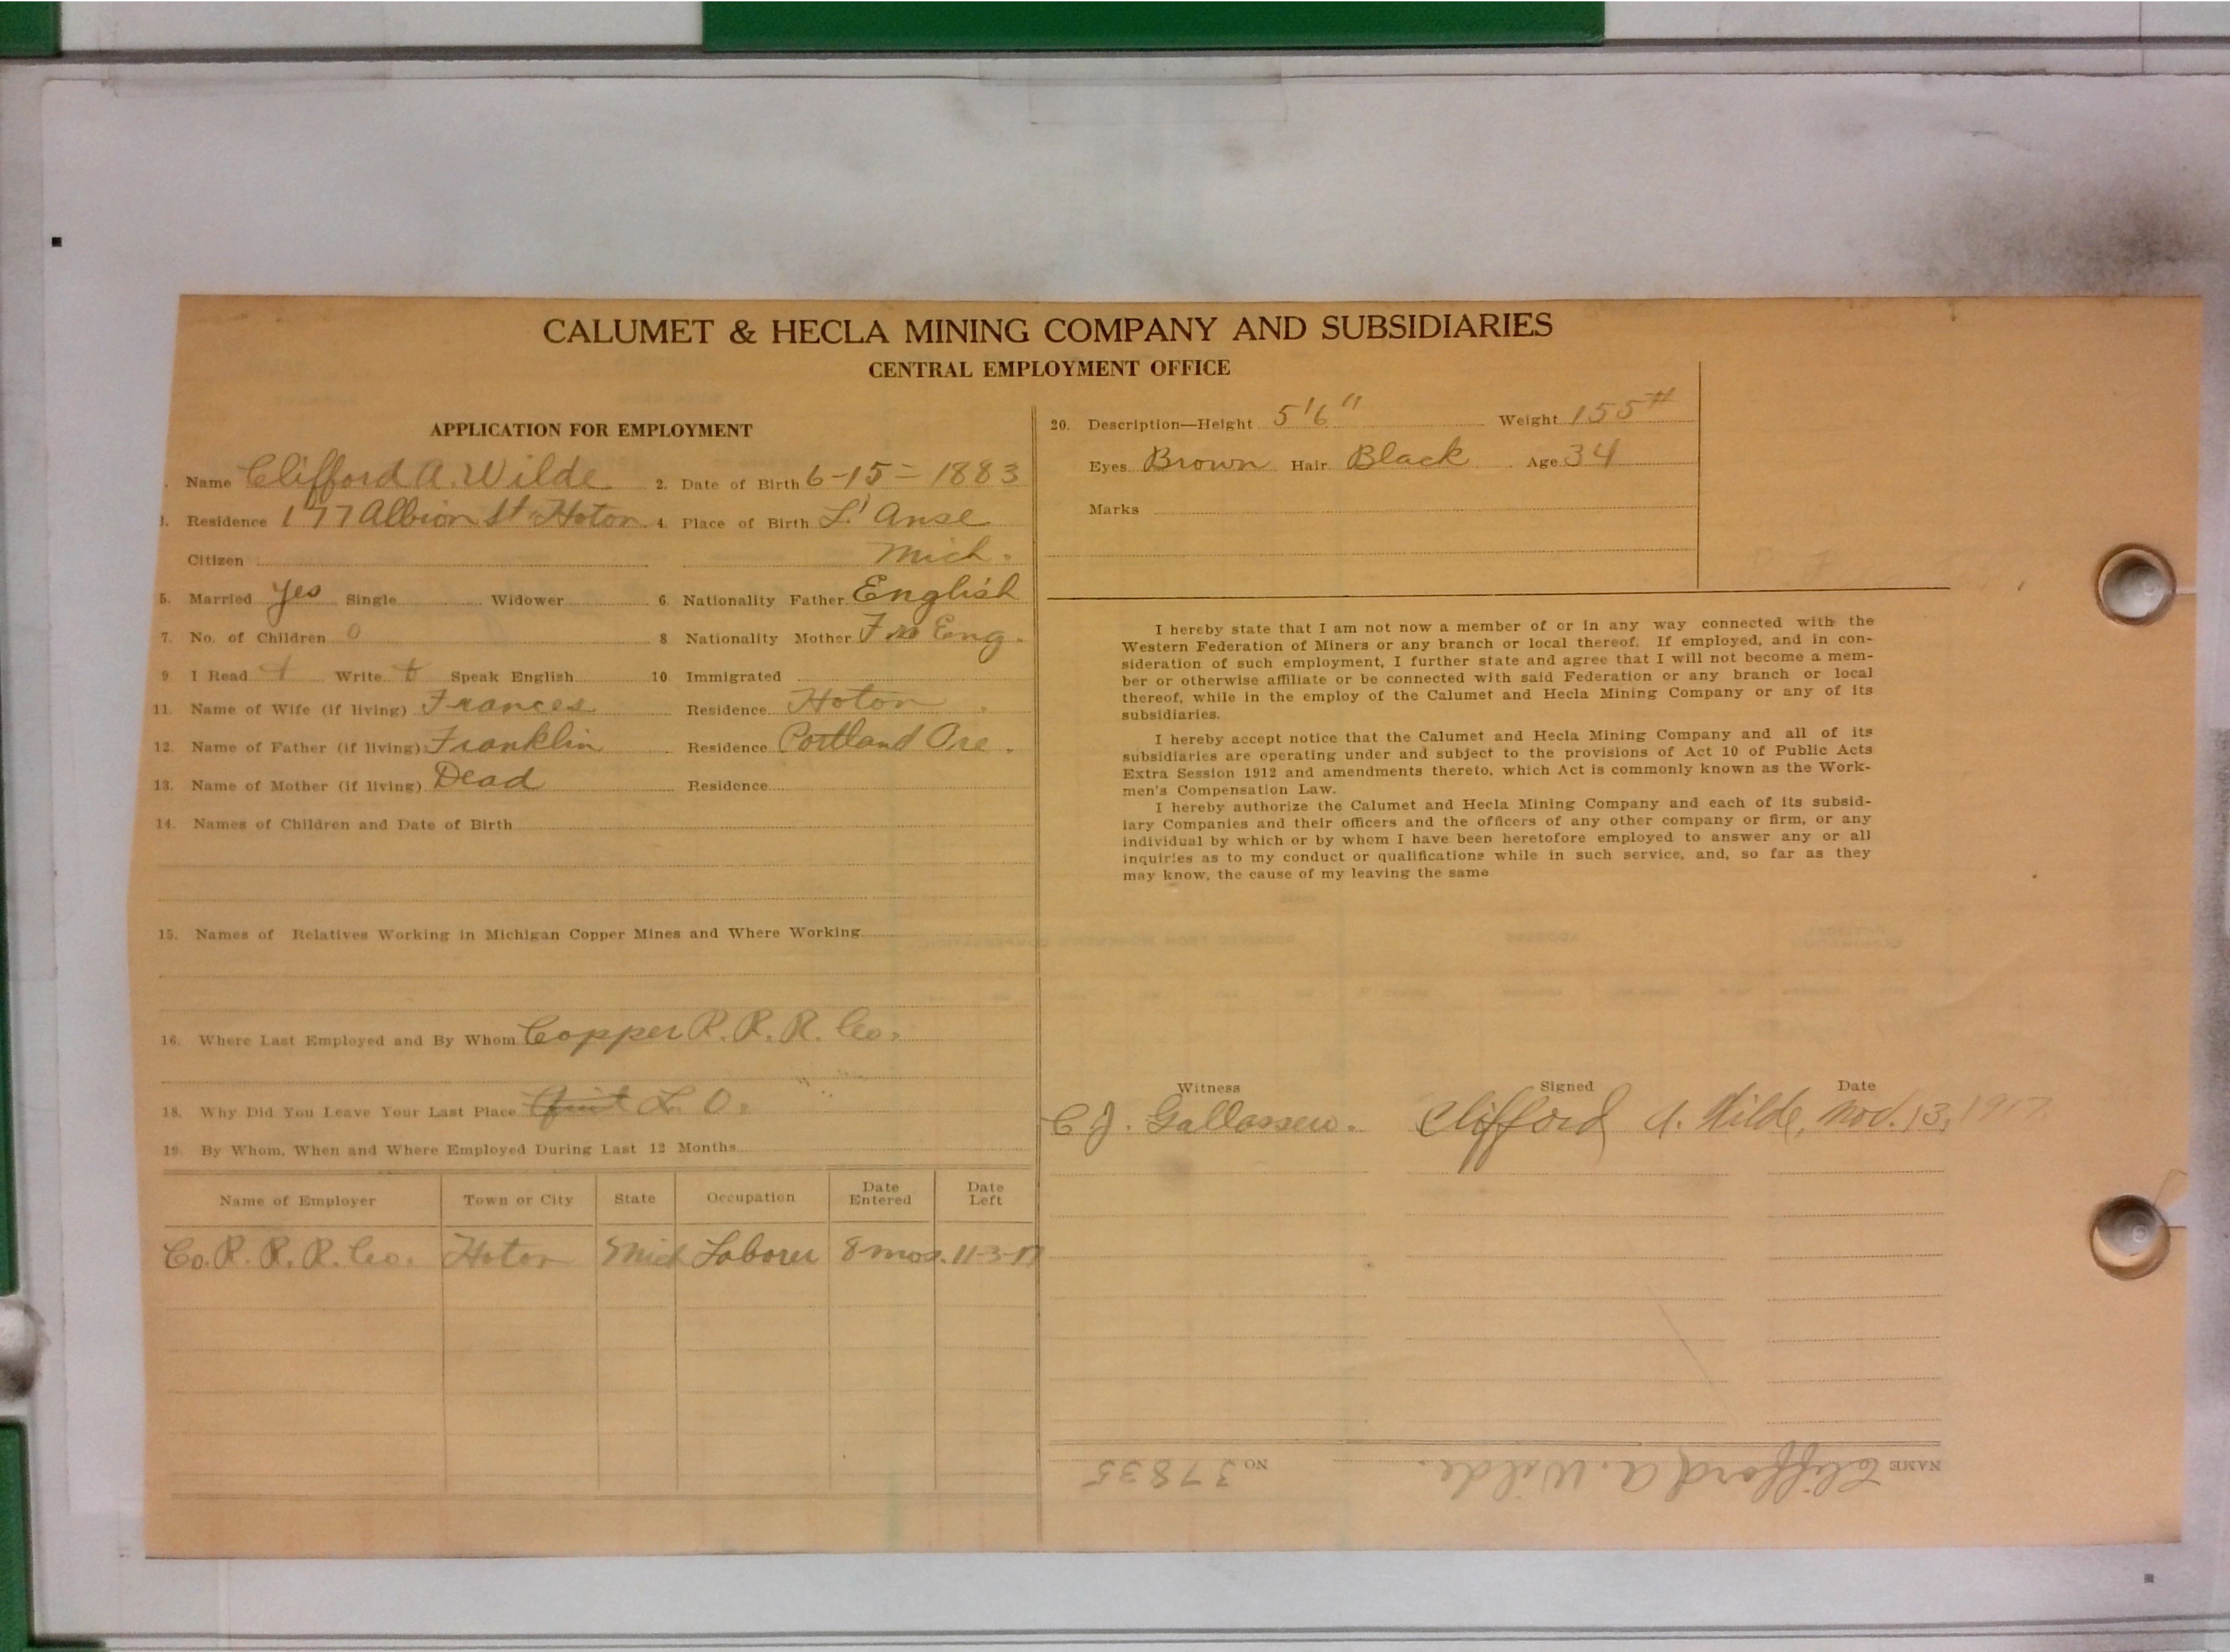 CALUMET & HECLA MINING COMPANY AND SUBSIDIARIES
CENTRAL EMPLOYMENT OFFICE
APPLICATION FOR EMPLOYMENT
Name Clifford A. Wilde 2. Date of Birth 6-15-1883
3. Residence 177 Albion St Hoton 4. Place of Birth L'Anse
Citizen Mich.
5. Married Yes Single Widower 6. Nationality Father English
7. No. of Children 0 8 Nationality Mother Eng.
9 I Read Write Speak English 10 Immigrated
11. Name of Wife (if living) Frances Residence Hoton
12. Name of Father (if living) Franklin Residence Portland Ore.
13. Name of Mother (if living) Dead Residence
14. Names of Children and Date of Birth
15. Names of Relatives Working in Michigan Copper Mines and Where Working
16. Where Last Employed and By Whom Copper R. R. R. Co.
18. Why Did You Leave Your Last Place Quit L. O.
19. By Whom, When and Where Employed During Last 12 Months
Name of Employer Town or City State Occupation Date Entered Date Left
Co. R. R. R. Co. Hoton Mich Laborer 8 mos. 11-3-17
20. Description—Height 5'6" Weight 155#
Eyes Brown Hair Black Age 34
Marks
I hereby state that I am not now a member of or in any way connected with the
Western Federation of Miners or any branch or local thereof. If employed, and in con-
sideration of such employment, I further state and agree that I will not become a mem-
ber or otherwise affiliate or be connected with said Federation or any branch or local
thereof, while in the employ of the Calumet and Hecla Mining Company or any of its
subsidiaries.
I hereby accept notice that the Calumet and Hecla Mining Company and all of its
subsidiaries are operating under and subject to the provisions of Act 10 of Public Acts
Extra Session 1912 and amendments thereto, which Act is commonly known as the Work-
men's Compensation Law.
I hereby authorize the Calumet and Hecla Mining Company and each of its subsid-
iary Companies and their officers and the officers of any other company or firm, or any
individual by which or by whom I have been heretofore employed to answer any or all
inquiries as to my conduct or qualifications while in such service, and, so far as they
may know, the cause of my leaving the same
Witness Signed Date
C. J. Clifford A. Wilde, Nov. 13, 1917
NAME Clifford A. Wilde. NO. 37835